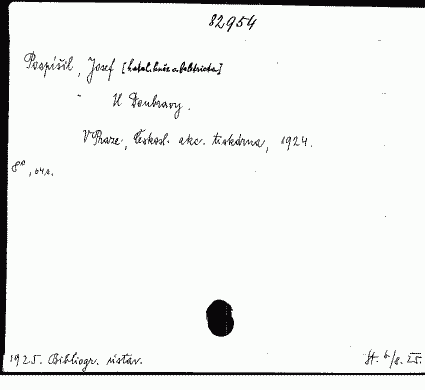 82954
Pospíšil, Josef [katol. kněz a beletrista]
U Doubravy.
V Praze, Českosl. akc. tiskárna, 1924.
8°,
1925. Bibliogr. ústav.